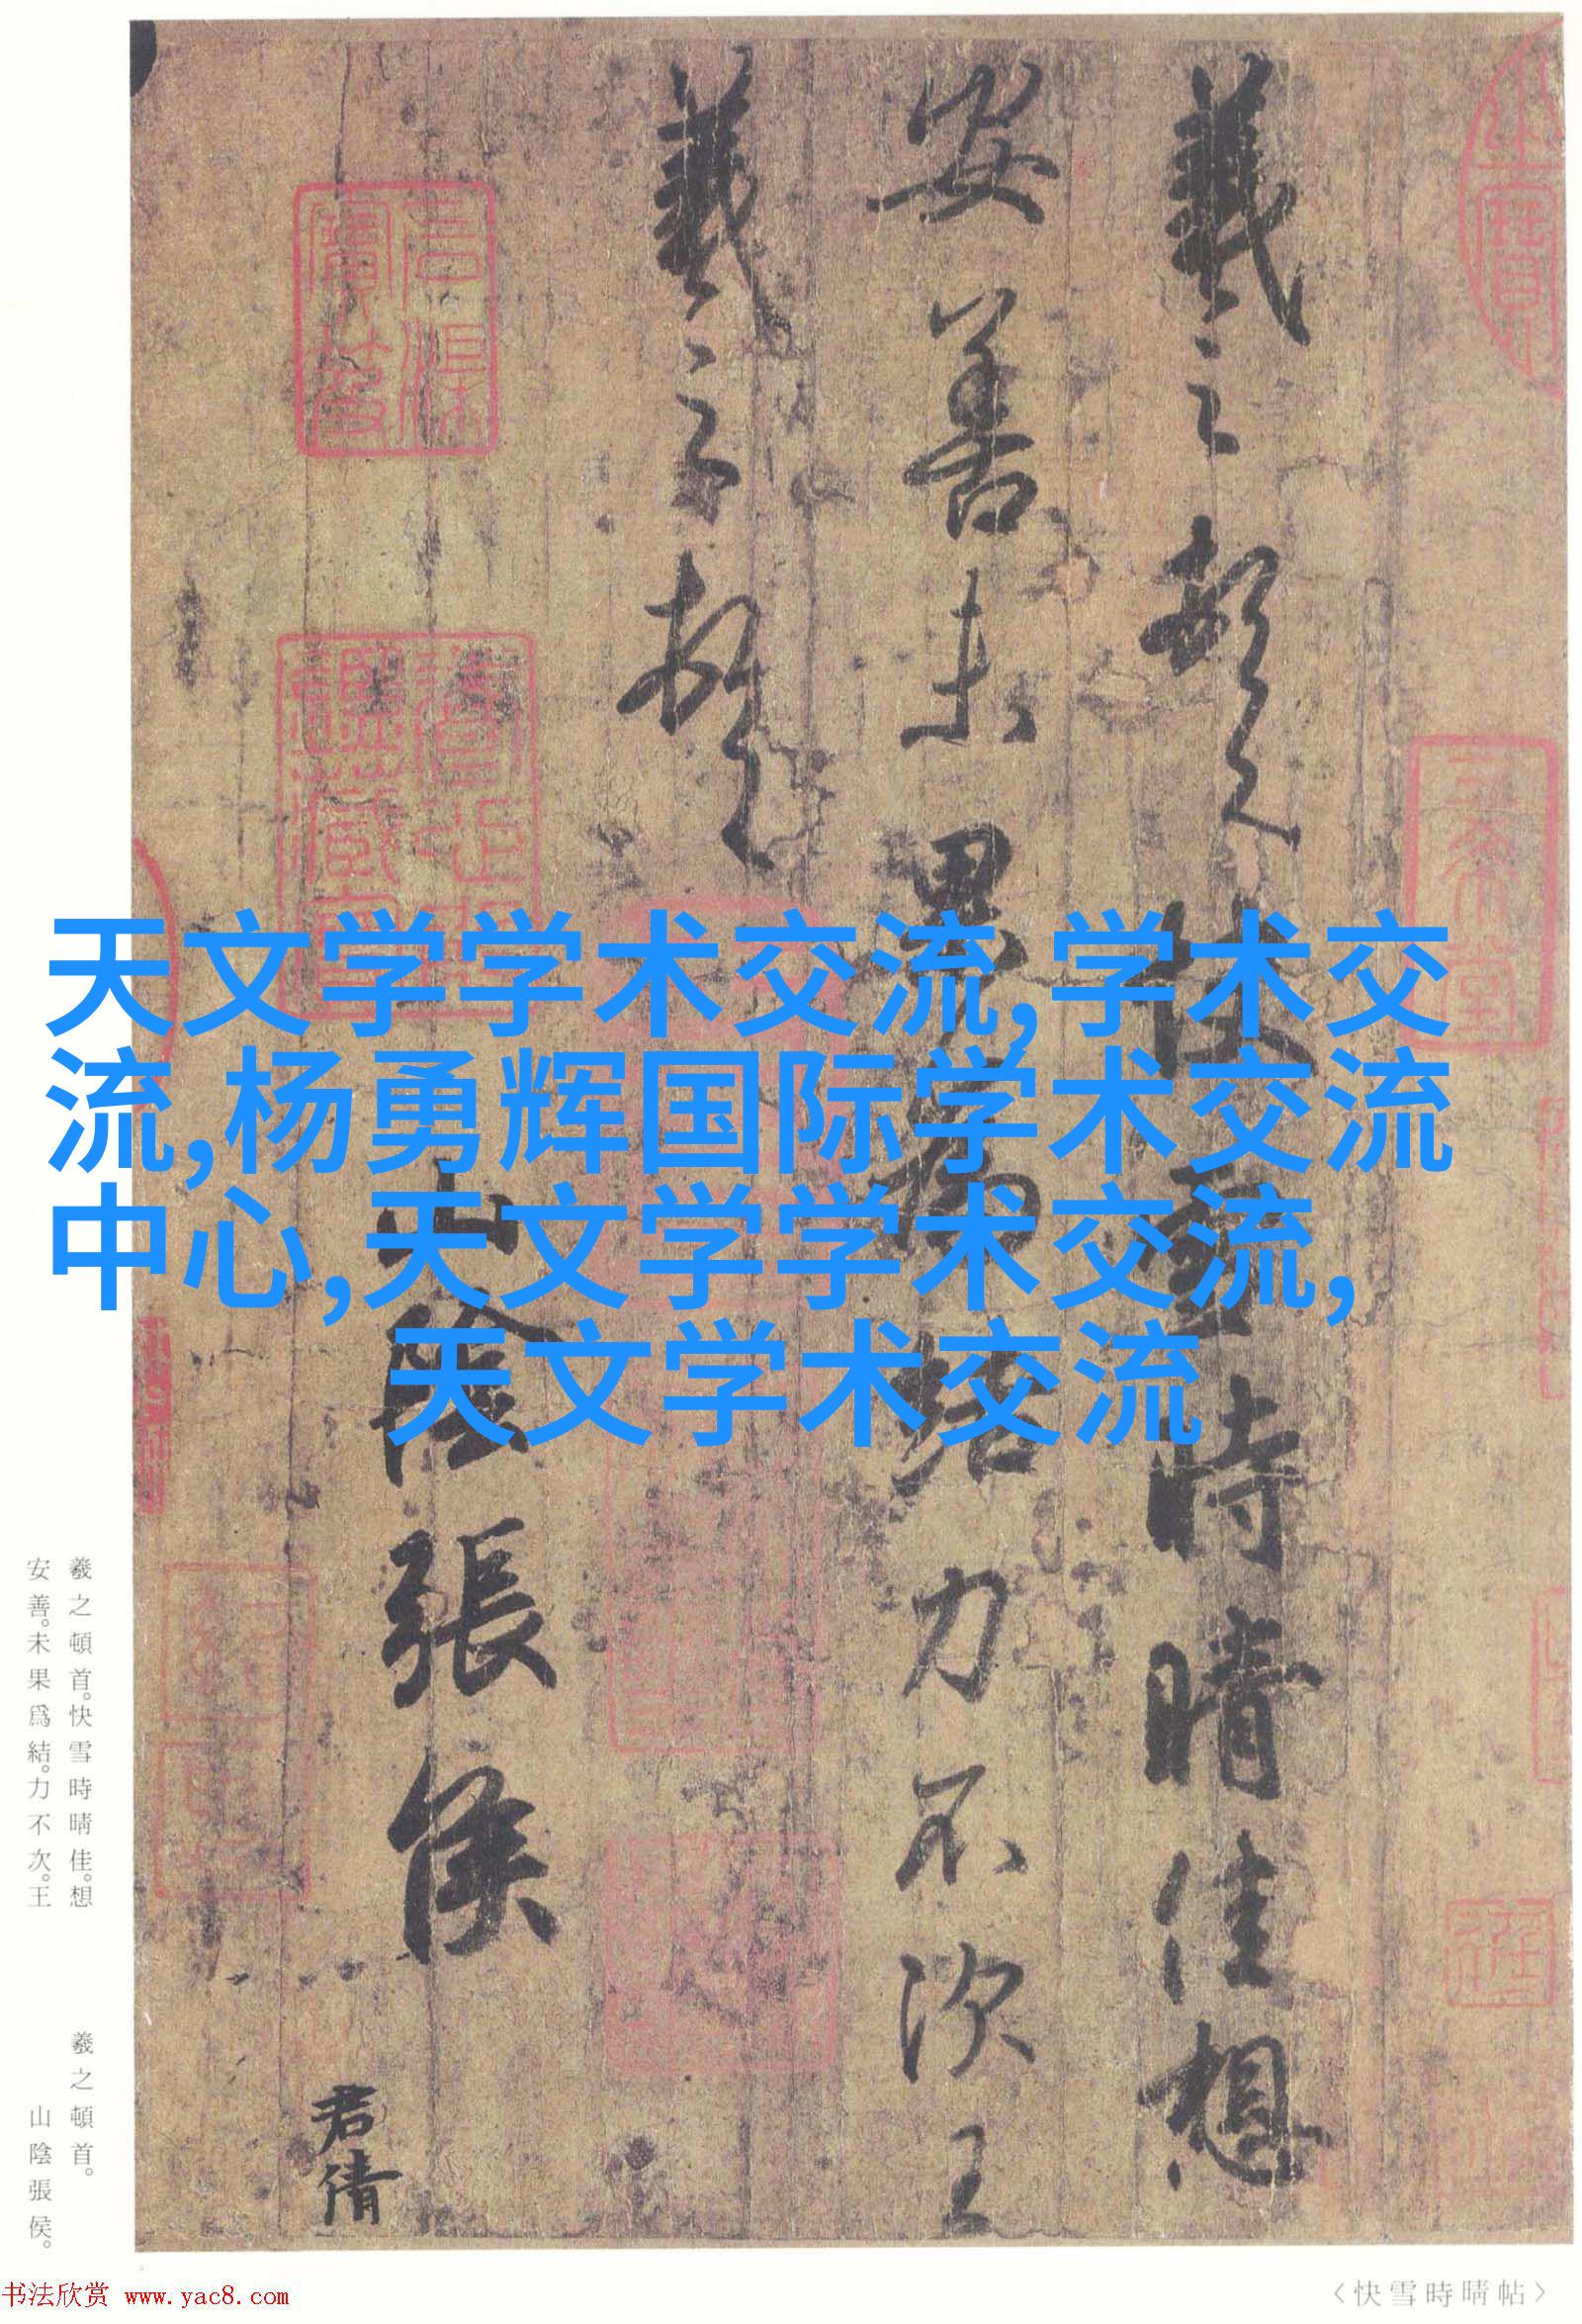 羲之頓首快雪時晴佳想
安善未果為結力不次王
羲之頓首
山陰張侯
君倩
天文学学术交流,学术交
流,杨勇辉国际学术交流
中心,天文学学术交流,
天文学术交流
羲之頓首。快雪時晴佳。想
安善。未果爲結。力不次。王
羲之頓首。
山陰張侯。
〈快雪時晴帖〉
书法欣赏 www.yac8.com